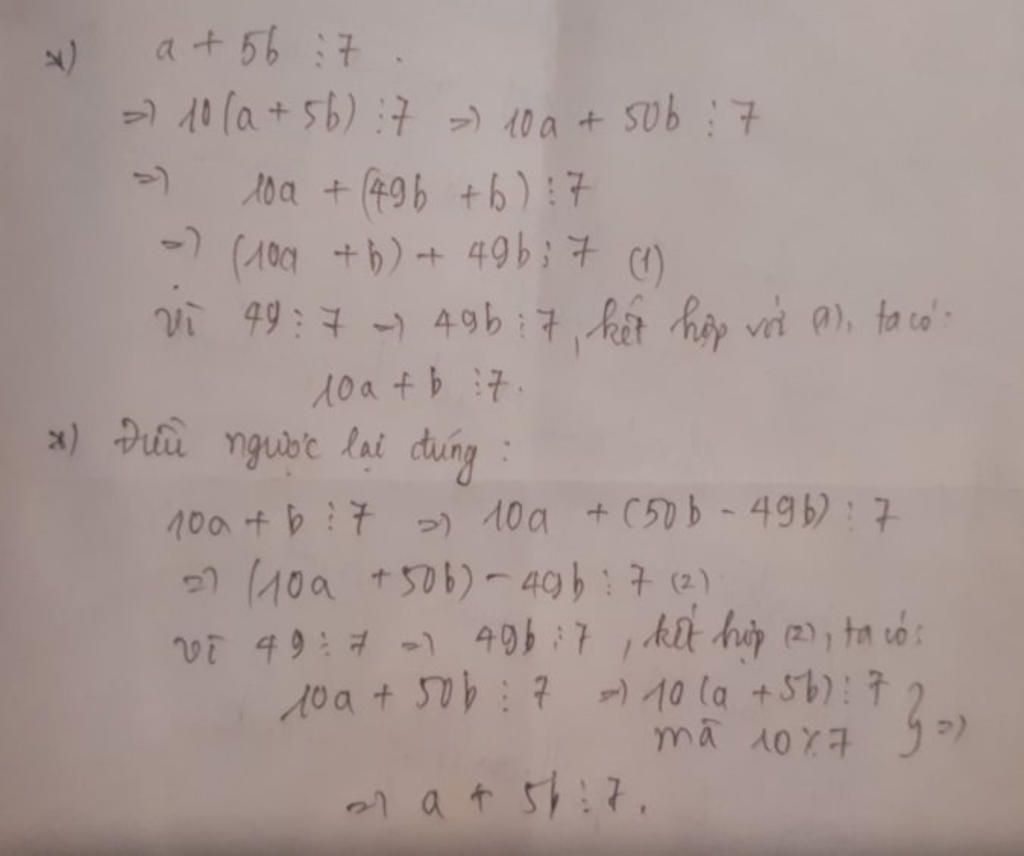 *) a + 5b ⋮ 7 .
=> 10(a + 5b) ⋮ 7 => 10a + 50b ⋮ 7
=> 10a + (49b + b) ⋮ 7
=> (10a + b) + 49b ⋮ 7 (1)
Vì 49 ⋮ 7 => 49b ⋮ 7, kết hợp với (1), ta có:
10a + b ⋮ 7.
*) Điều ngược lại đúng :
10a + b ⋮ 7 => 10a + (50b - 49b) ⋮ 7
=> (10a + 50b) - 49b ⋮ 7 (2)
Vì 49 ⋮ 7 => 49b ⋮ 7, kết hợp (2), ta có:
10a + 50b ⋮ 7 => 10(a + 5b) ⋮ 7
mà 10 ⋮̸ 7 } =>
=> a + 5b ⋮ 7.